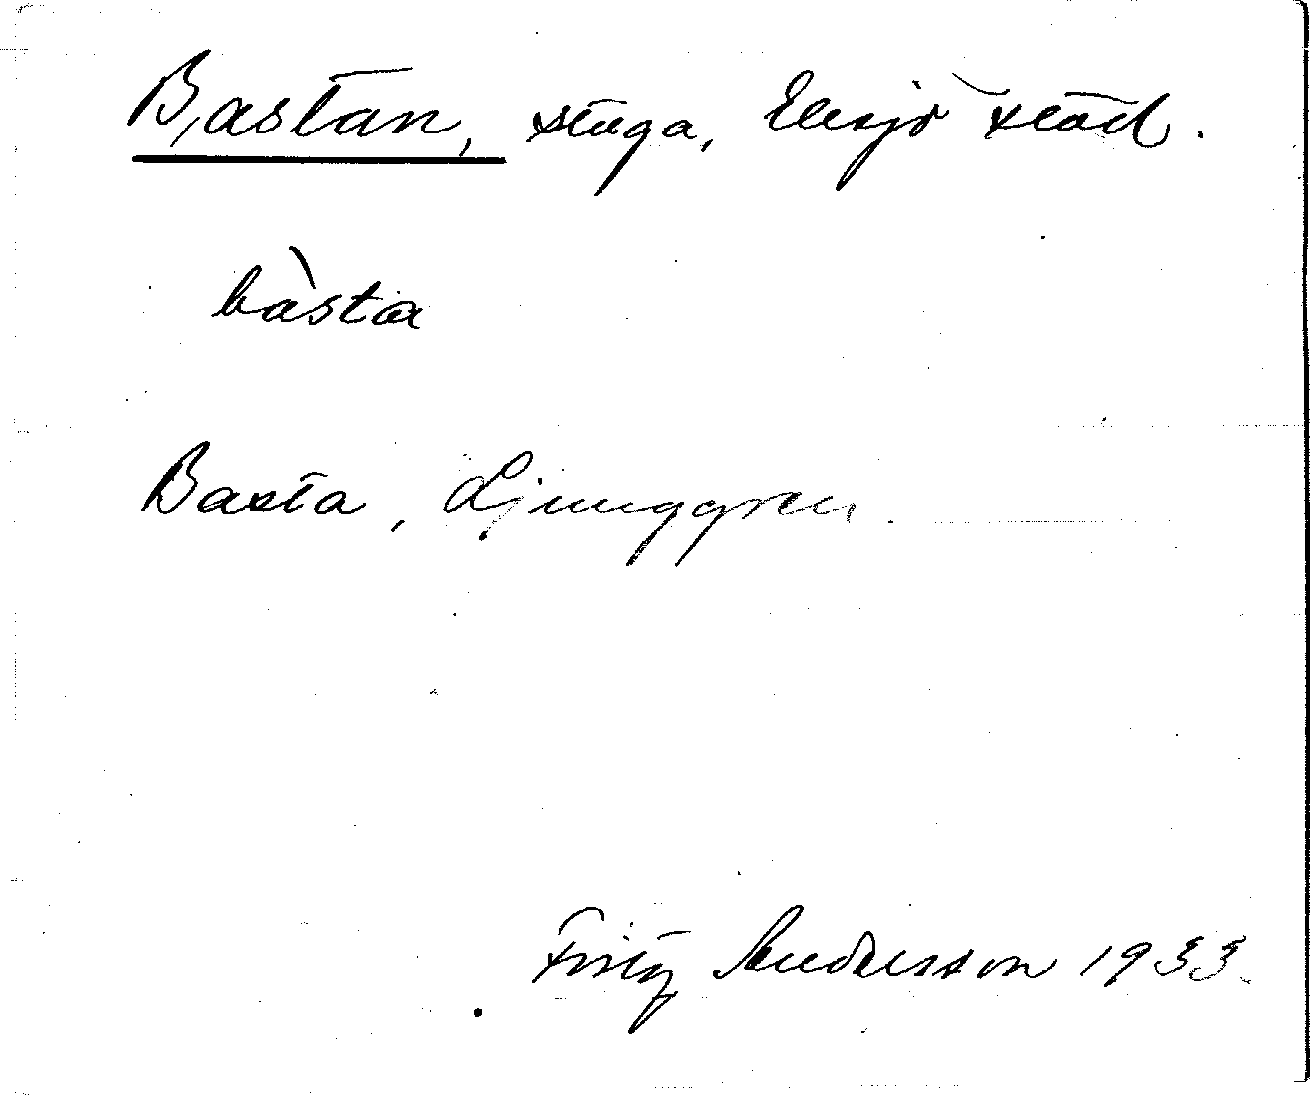 Bastan, stuga, Elisjö städ.
bàsta
Basta, Ljunggren.
Fritz Andersson 1933.